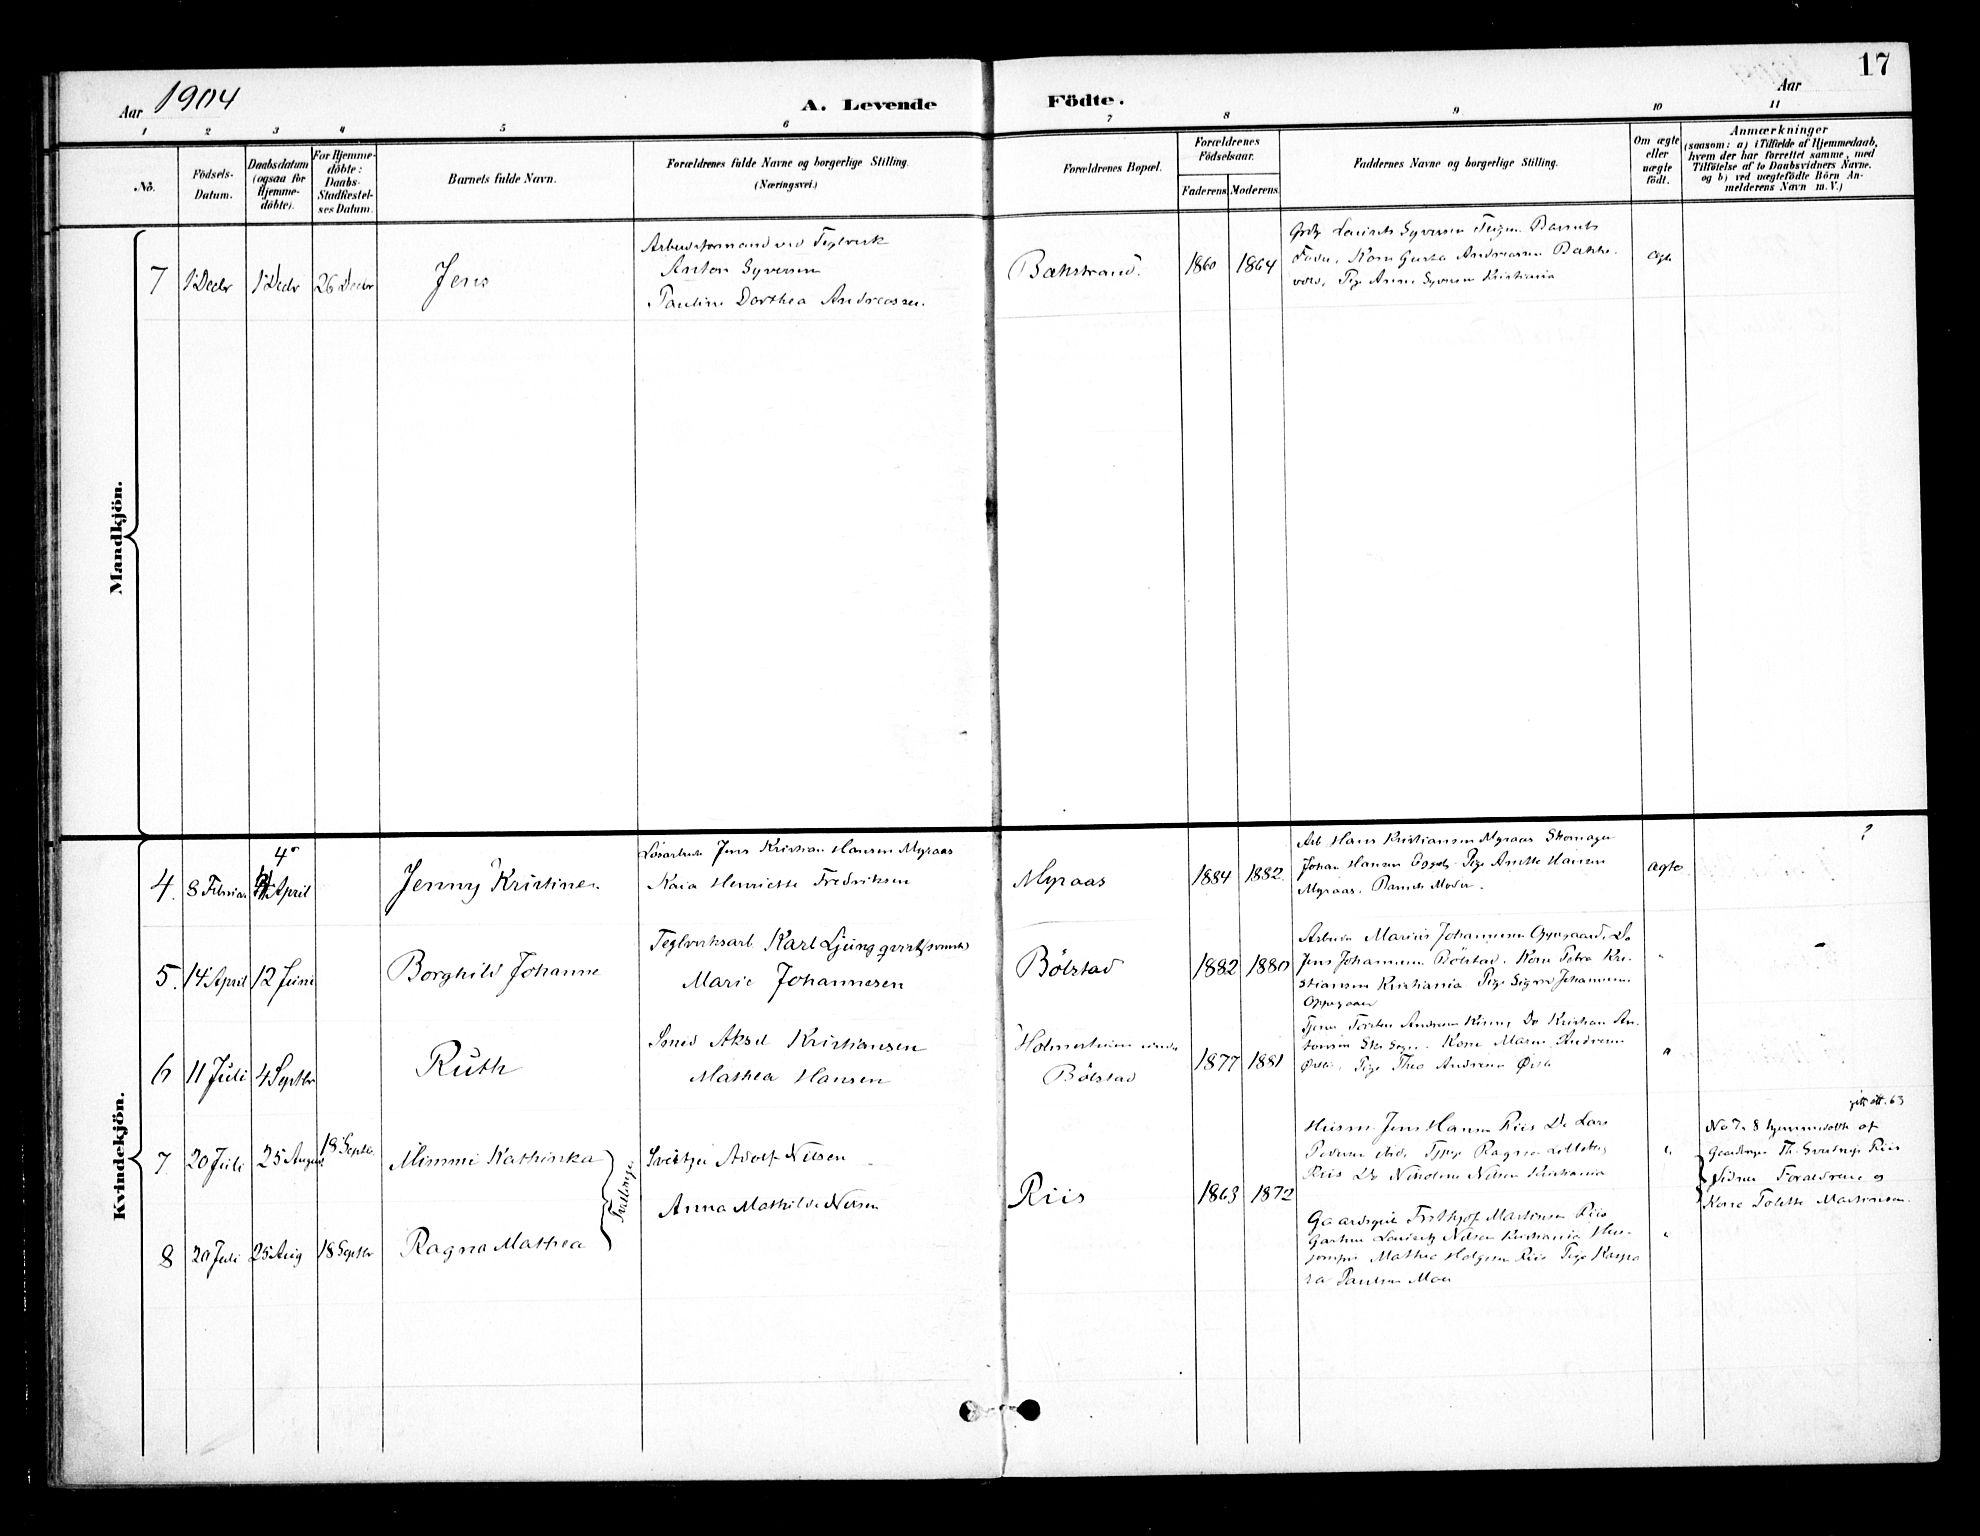 17
Aar 1904 A. Levende Födte. Aar
1 2 3 4 5 6 7 8 9 10 11
No.
Födsels-
Datum.
Daabsdatum
(ogsaa for
Hjemme-
döbte).
For Hjemme-
döbte:
Daabs-
Stadfæstel-
ses Datum.
Barnets fulde Navn.
Forældrenes fulde Navne og borgerlige Stilling.
(Næringsvei.)
Forældrenes Bopæl.
Forældrenes
Födselsaar.
Faderens. Moderens.
Faddernes Navne og borgerlige Stilling.
Om ægte
eller
uægte
födt.
Anmærkninger
(saasom: a) i Tilfælde af Hjemmedaab,
hvem der har forrettet samme, med
Tilföielse af to Daabsvidners Navne.
og b) ved uægtefödte Börn An-
melderens Navn m. V.)
Mandkjön.
7 1 Decbr 1 Decbr 26 Decbr Jens
Arbeidsformand ved Teglverk
Anton Syversen
Pauline Dorthea Andreassen.
Bakstrand. 1860 1864
Syversen Teigen Barnets
Fader, Kone Andreassen Bakke-
vold, Pige Anna Syversen Kristiania
ægte
Kvindekjön.
4. 8 Februar 4 April Jenny Kristine
Løsarbeider Jens Kristian Hansen Myraas
Kaia Henriette Fredriksen
Myraas 1884 1882.
Arb Hans Kristiansen Myraas Skomager
Johan Hansen Pige Anette Hansen
Myraas. Barnets Moder.
ægte
?
5. 14 April 12 Juni Borghild Johanne
Teglverksarb Karl Ljungqvist (svensk)
Marie Johannesen
Bölstad 1882 1880
Arbeider Marius Johannesen Oppegaard, Do
Jens Johannesen Bölstad. Kone Petra Kri-
stiansen Kristiania Pige Sigrid Johannesen
Oppegaard
"
6 11 Juli 4 Septbr Ruth
Smed Aksel Kristiansen
Mathea Hansen
Holmerheim under
Bölstad
1877 1881
Andresen Do Kristian An-
Kone Maren Andresen
Pige Thea Andresen
"
gift ett. 63
7 20 Juli 25 August 18 Septbr. Mimmi Kathinka
Tvillinger
Sveitser Adolf Nilsen
Anna Mathilde Nilsen
Riis 1863 1872
Husm. Jens Hansen Riis Do Lars
Pedersen ibid, Ragna
Riis Do Nikoline Nilsen Kristiania
"
No 7 & 8 hjemmedöbte af
Gaardbruger Th. Riis
Vidner Forældrene og
Kone Martinsen.
8 20 Juli 25 Aug 18 Septbr Ragna Mathea
Frithjof Martinsen Riis
Gartner Nilsen Kristiania
Mathea Holgersen Riis Pige Kaspa
ra Paulsen
"